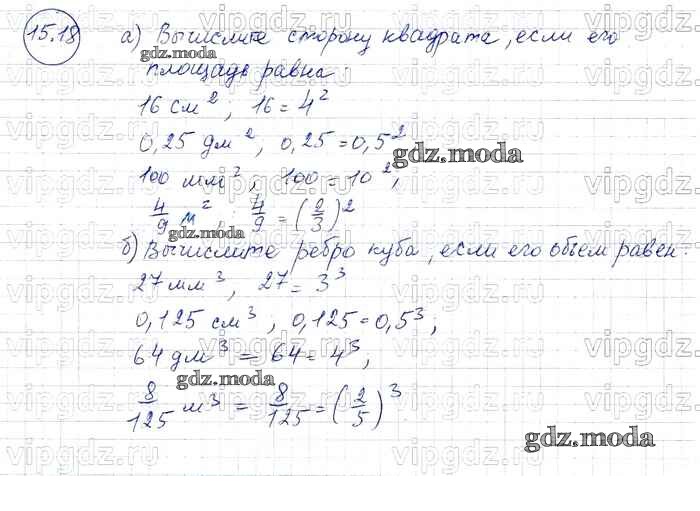 15.18
а) Вычислите сторону квадрата, если его
gdz.moda
площадь равна:
16 см², 16 = 4²
0,25 дм², 0,25 = 0,5²
gdz.moda
100 мм², 100 = 10²,
4/9 м², 4/9 = (2/3)²
gdz.moda
б) Вычислите ребро куба, если его объем равен:
27 мм³, 27 = 3³
0,125 см³, 0,125 = 0,5³;
64 дм³ = 64 = 4³,
gdz.moda
8/125 м³ = 8/125 = (2/5)³
gdz.moda
vipgdz.ru